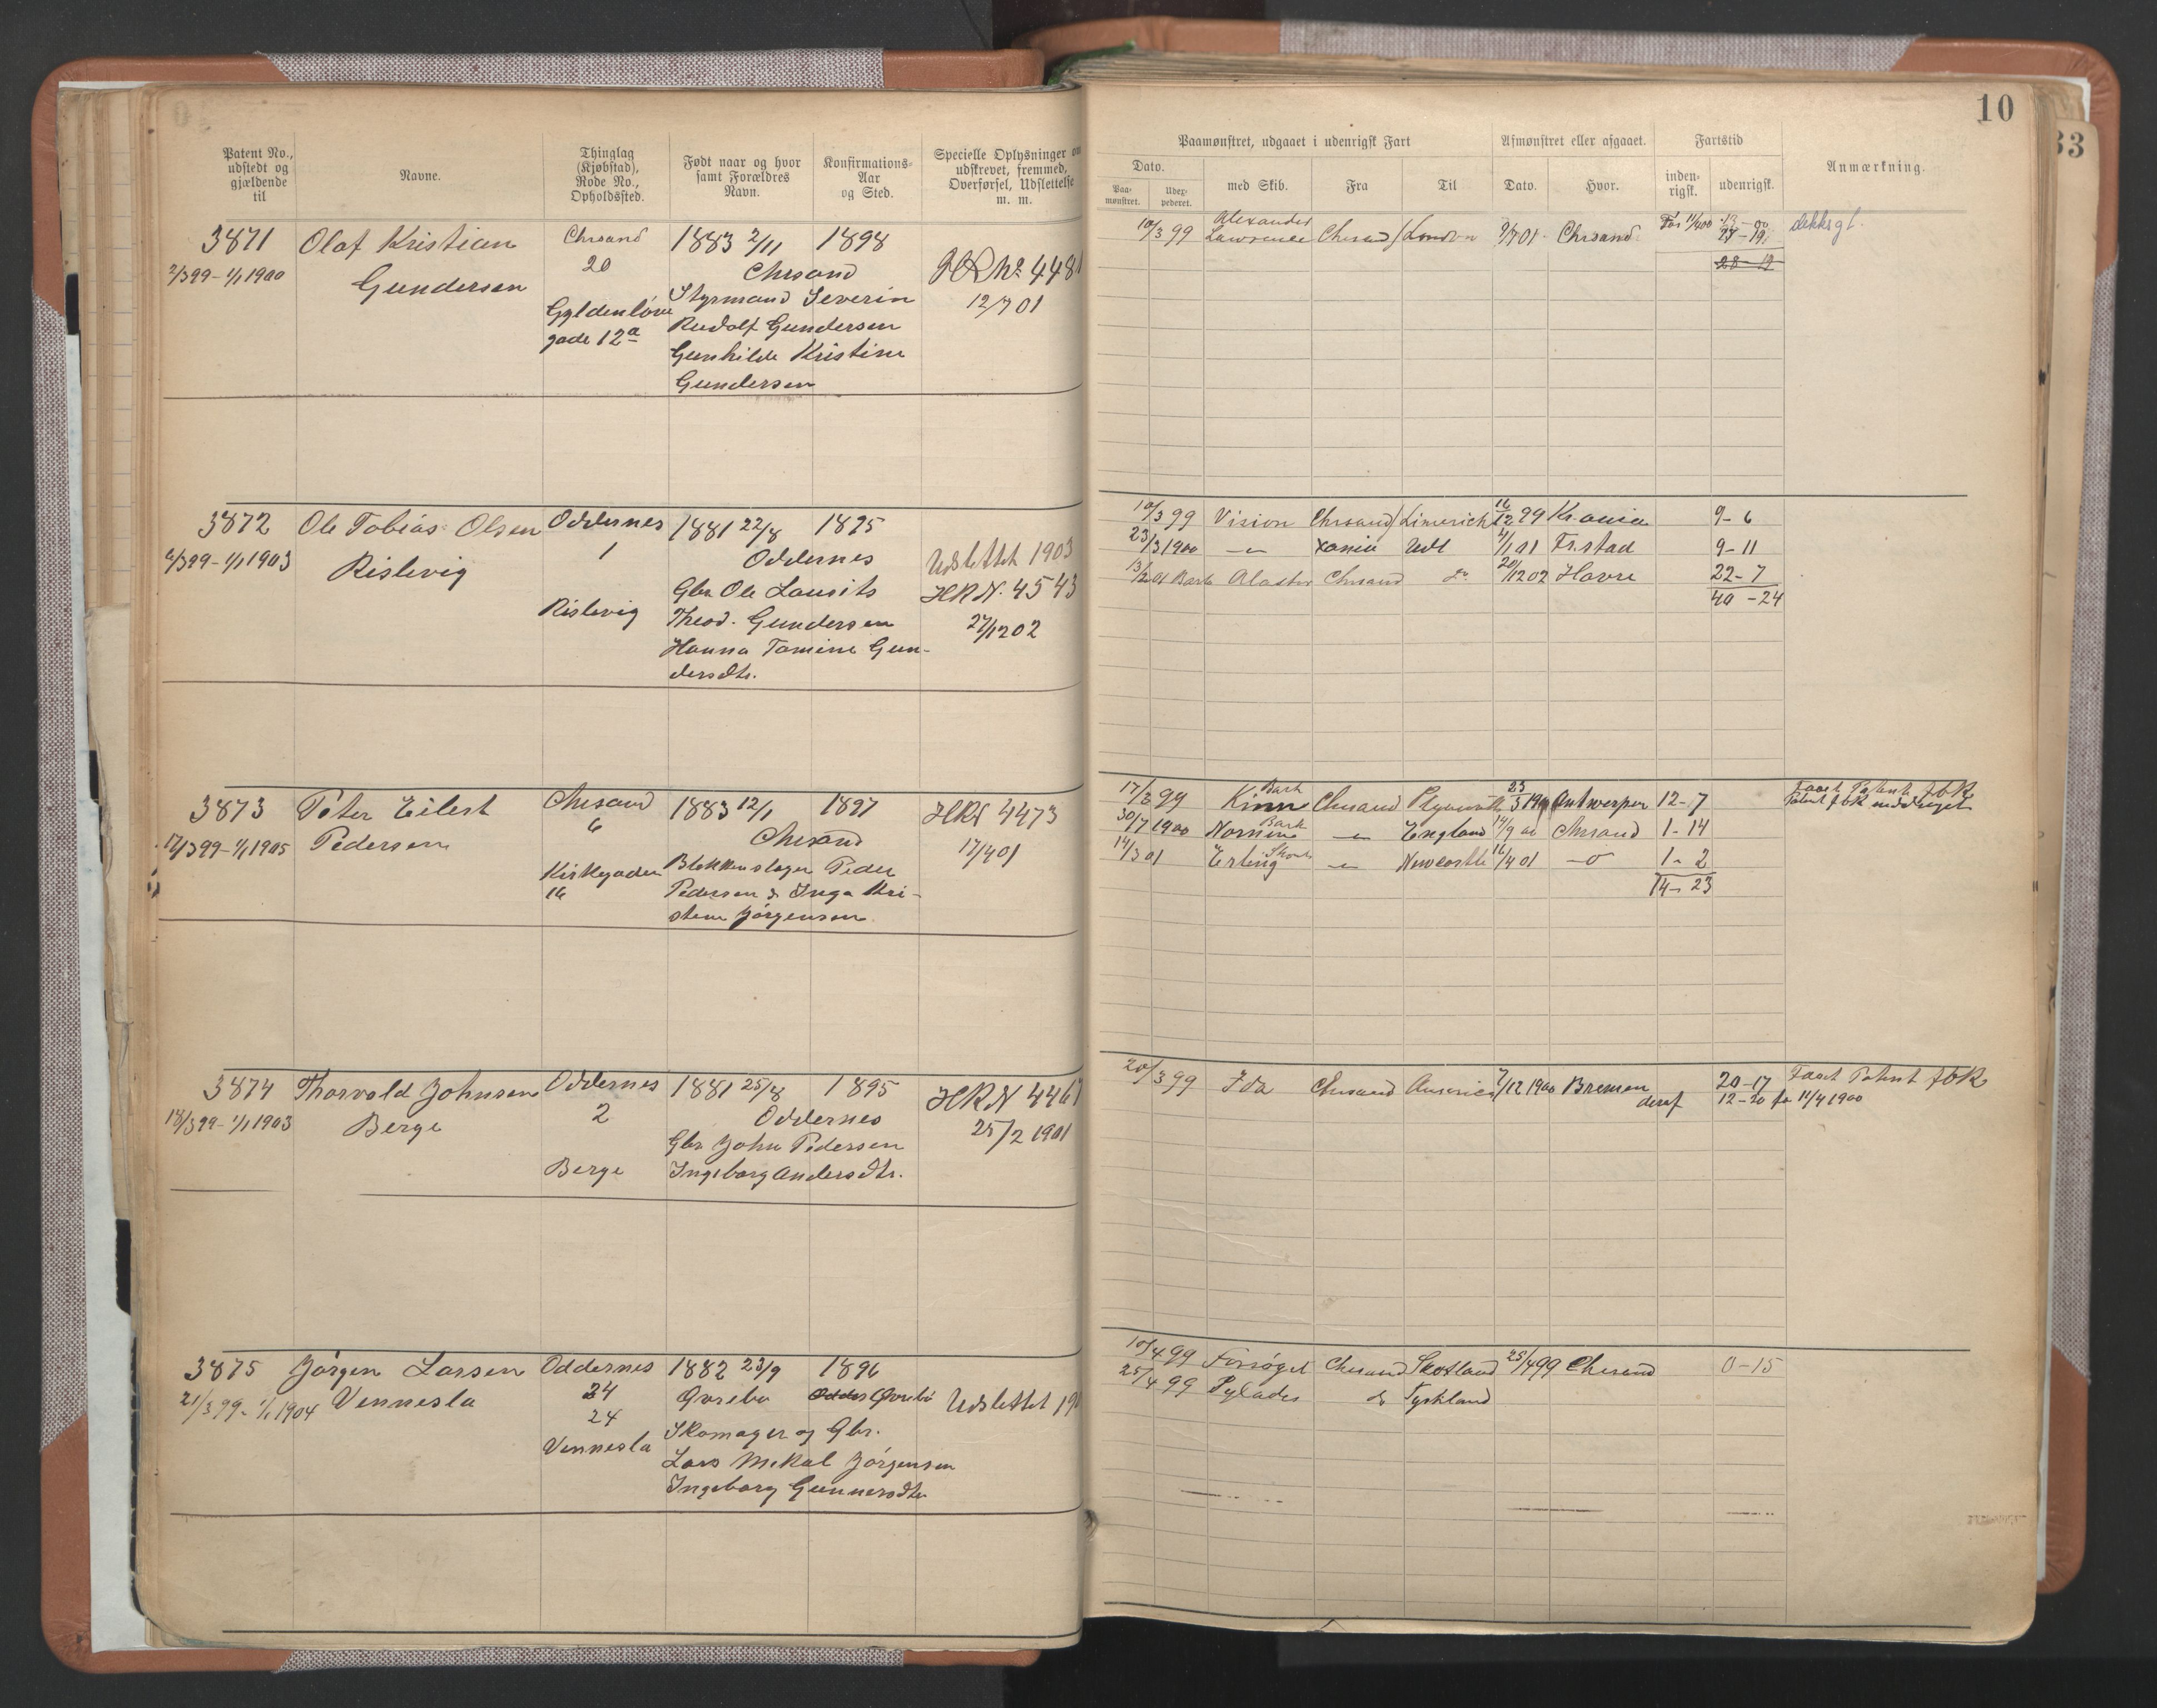 10
33
Patent No., udstedt og gjældende til
Navne.
Thinglag (Kjøbstad), Rode No., Opholdssted.
Født naar og hvor samt Forældres Navn.
Konfirmations-Aar og Sted.
Specielle Oplysninger om udskrevet, fremmed, Overførsel, Udslettelse m. m.
Paamønstret, udgaaet i udenrigsk Fart
Dato.
Paa-mønstret.
Udex-pederet.
med Skib.
Fra
Til
Afmønstret eller afgaaet.
Dato.
Hvor.
Fartstid
inden-rigsk.
udenrigsk.
Anmærkning.
3871 Olaf Kristian Chrsand 1883 2/11 1898
2/3 99 - 1/1 1900 Gundersen 20 Chrsand HR No 4481
Gyldenløve Styrmand Severin 12/7 01
gade 12a Rudolf Gundersen
Gunhilde Kristine
Gundersen
10/3 99 Alexander Lawrence Chrsand London 9/7 01 Chrsand
27-19
28-19
dekksgt.
3872 Ole Tobias Olsen Oddernes 1881 22/8 1895
6/3 99 - 1/1 1903 Rislevig 1 Oddernes Udslettet 1903
Rislevig Gbr. Ole Laurits HRN. 4543
Theod. Gundersen 27/12 02
Hanna Tomine Gun-
dersdtr.
10/3 99 Vision Chrsand Limerick 16/12 99 Krania 9-6
23/3 1900 -"- Xania Udl 4/1 01 Fr.stad 9-11
13/2 01 Bark Alaster Chrsand do 20/12 02 Havre 22-7
40-24
3873 Peter Eilert Chrsand 1883 12/1 1897 HRN 4473
17/3 99 - 1/1 1905 Pedersen 6 Chrsand 17/4 01
Kirkegaden Blokkmager Peder
16 Pedersen & Inga Kri-
stine Jørgensen
17/3 99 Bark Kinn Chrsand Plymouth 23/3 1900 Antwerpen 12-7 Faaet Patent fbK
Patent fbK meddraget
30/7 1900 Bark Nornen -"- England 14/9 00 Chrsand 1-14
14/3 01 Erling Skonn -"- Newcastle 16/4 01 -o- 1-2
14-23
3874 Thorvald Johnsen Oddernes 1881 25/8 1895 HRN 4467
18/3 99 - 1/1 1903 Berge 2 Oddernes 25/2 1901
Gbr. John Pedersen
Berge Ingeborg Andersdtr.
20/3 99 Ida Chrsand America 7/12 1900 Bremen 20-17 Faaet Patent fbK
deraf 12-20 fr 11/4 1900
3875 Jørgen Larsen Oddernes 1882 23/9 1896
21/3 99 - 1/1 1904 Vennesla 24 Øvrebø Øvrebø Udslettet 190
24 Skomager og Gbr.
Vennesla Lars Mikal Jørgensen
Ingeborg Gunnersdtr
10/4 99 Forsøget Chrsand Skotland 25/4 99 Chrsand 0-15
25/4 99 Pylades do Tyskland